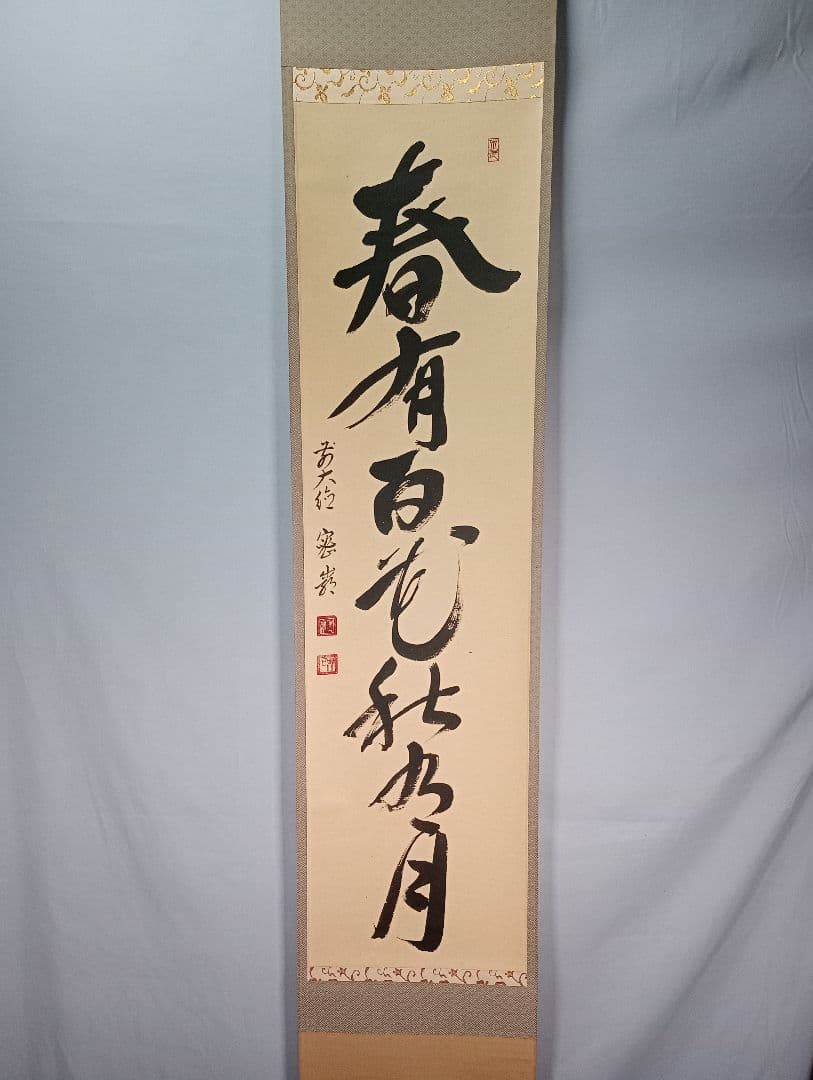 春有百花秋有月
前大徳 寛嶺